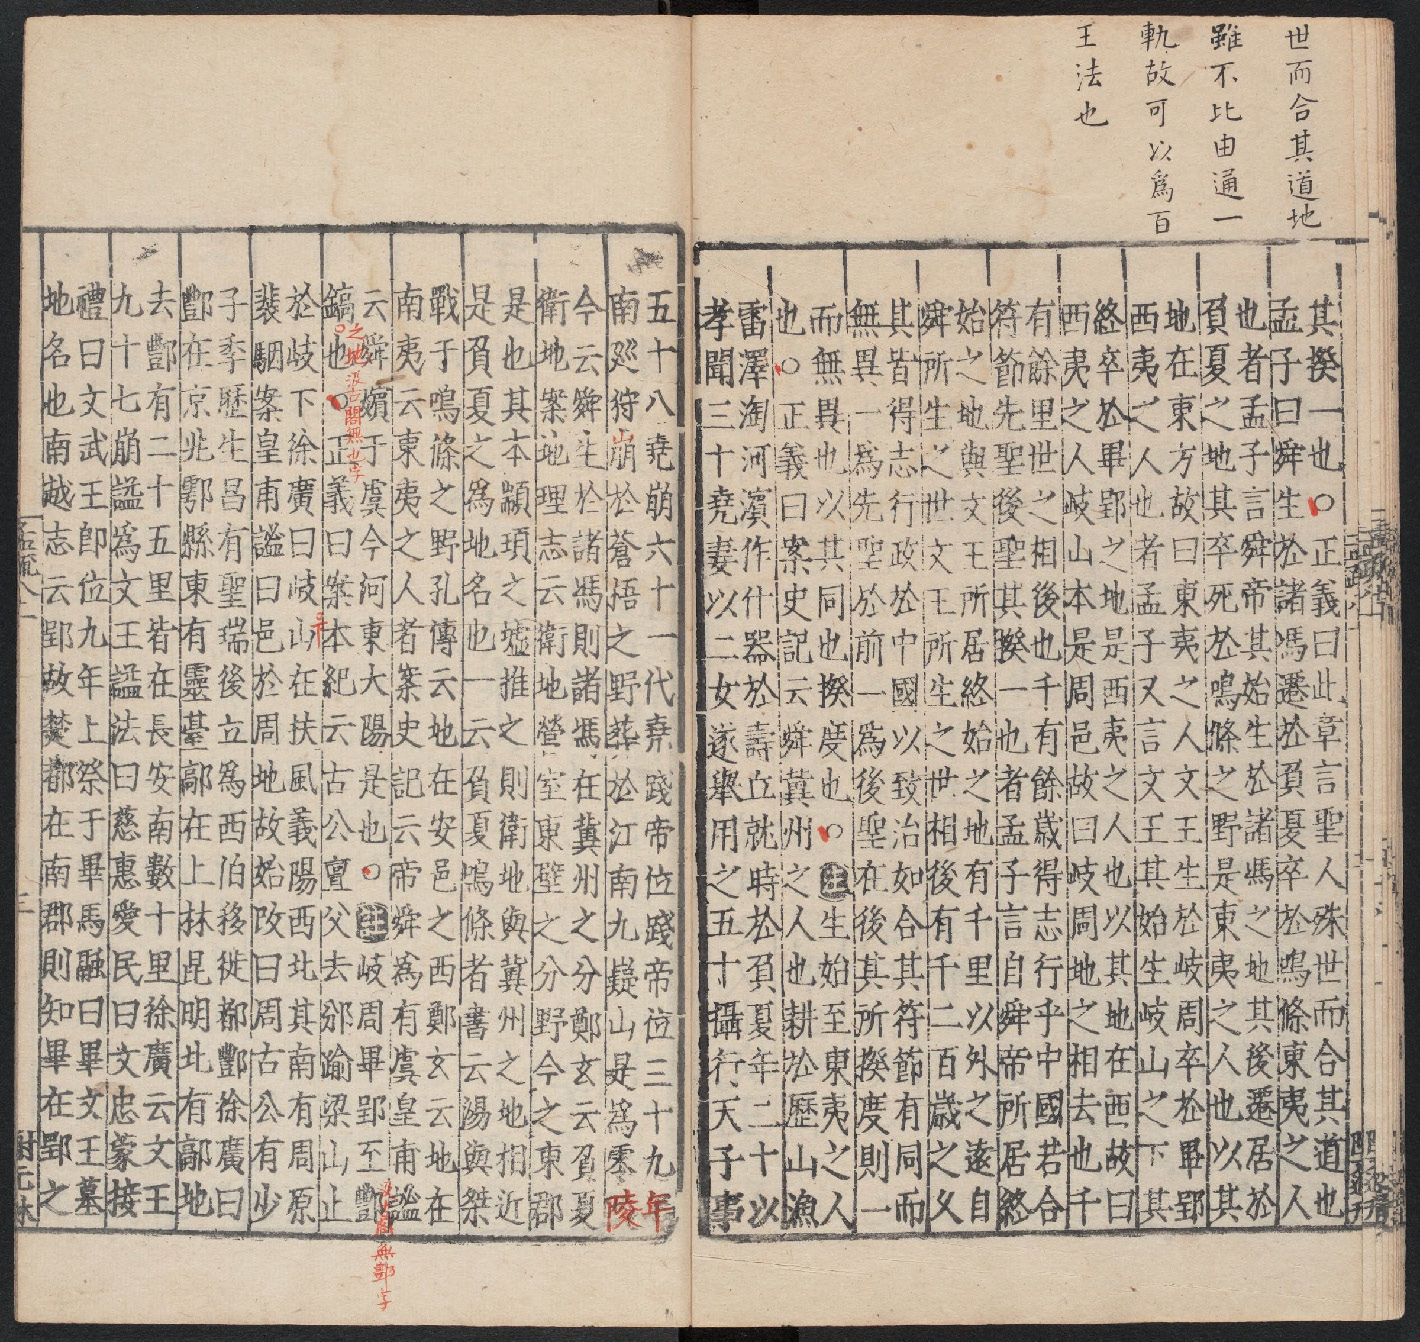 世而合其道地
雖不比由通一
軌故可以爲百
王法也
其揆一也○正義曰此章言聖人殊世而合其道也
孟子曰舜生於諸馮遷於負夏卒於鳴條東夷之人
也者孟子言舜帝其始生於諸馮之地其後遷居於
負夏之地其卒死於鳴條之野是東夷之人也以其
地在東方故曰東夷之人文王生於岐周卒於畢郢
西夷之人也者孟子又言文王其始生岐山之下其
終卒於畢郢之地是西夷之人也以其地在西故曰
西夷之人岐山本是周邑故曰岐周地之相去也千
有餘里世之相後也千有餘歲得志行乎中國若合
符節先聖後聖其揆一也者孟子言自舜帝所居終
始之地與文王所居終始之地有千里以外之遠自
舜所生之世文王所生之世相後有千二百歲之久
其皆得志行政於中國以致治如合其符節有同而
無異一爲先聖於前一爲後聖在後其所揆度則一
而無異也以其同也揆度也○註生始至東夷之人
也○正義曰案史記云舜冀州之人也耕於歷山漁
雷澤淘河濱作什器於壽丘就時於負夏年二十以
孝聞三十堯妻以二女遂舉用之五十攝行天子事
五十八堯崩六十一代堯踐帝位踐帝位三十九年
南廵狩崩於蒼梧之野葬於江南九嶷山是爲零陵
今云舜生於諸馮則諸馮在冀州之分鄭玄云負夏
衛地案地理志云衛地營室東壁之分野今之東郡
是也其本顓頊之墟推之則衛地與冀州之地相近
是負夏之爲地名也一云負夏鳴條者書云湯與桀
戰于鳴條之野孔傳云地在安邑之西鄭玄云地在
南夷云東夷之人者案史記云帝舜爲有虞皇甫謐
云舜嬪于虞今河東大陽是也○註岐周畢郢至酆
汲古閣無酆字
鎬也○正義曰案本紀云古公亶父去邠踰梁山止
之地汲古閣無也字
於岐下徐廣曰岐山在扶風義陽西北其南有周原
裴駰案皇甫謐曰邑於周地故始改曰周古公有少
子季歷生昌有聖瑞後立爲西伯移徙都酆徐廣曰
酆在京兆鄠縣東有靈臺鄗在上林昆明北有鄗地
去酆有二十五里皆在長安南數十里徐廣云文王
九十七崩諡爲文王諡法曰慈惠愛民曰文忠蒙接
禮曰文武王卽位九年上祭于畢馬融曰畢文王墓
地名也南越志云郢故楚都在南郡則知畢在郢之